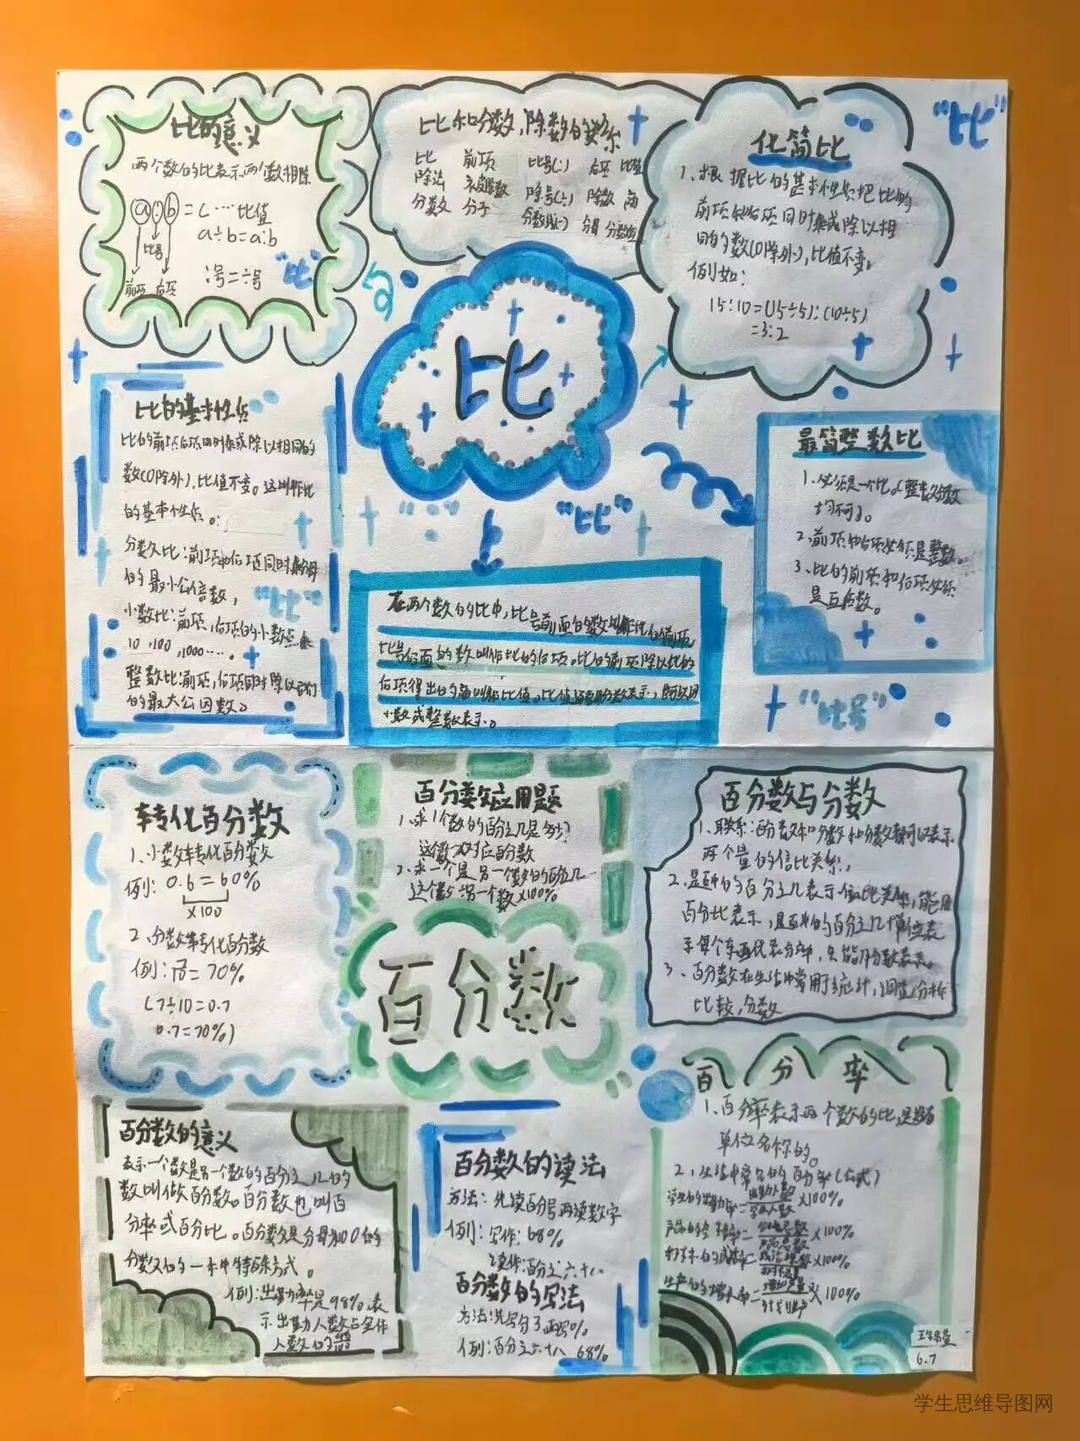 比的意义
两个数的比表示两个数相除
a:b=c……比值
a÷b=a:b
比号
前项 后项
:号=÷号
"比"
比和分数,除数的关系
比 前项 比号(:) 后项 比值
除法 被除数 除号(÷) 除数 商
分数 分子 分数线(-) 分母 分数值
"比"
化简比
1、根据比的基本性质把比的
前项和后项同时乘或除以相
同的数(0除外),比值不变。
例如:
15:10=(15÷5):(10÷5)
=3:2
比
比的基本性质
比的前项后项同时乘或除以相同的
数(0除外),比值不变。这叫作比
的基本性质。
分数比:前项和后项同时乘分母
的最小公倍数,
小数比:前项,后项的小数点
10,100,1000……。
"比"
整数比:前项,后项同时除以它们
的最大公因数。
"比"
最简整数比
1、必须是一个比。
均不可。
2、前项和后项必须是整数。
3、比的前项和后项必须
是互质数。
在两个数的比中,比号前面的数叫作比的前项
比号后面的数叫作比的后项。比的前项除以比的
后项得出的商叫作比值。比值通常用分数表示,
小数或整数表示。
"比号"
转化百分数
1、小数转化百分数
例:0.6=60%
×100
2、分数转化百分数
例:7/10=70%
(7÷10=0.7
0.7=70%)
百分数应用题
1、求1个数的百分之几是多少?
这个数×对应百分数
2、求一个是另一个数的百分几
这个数÷另一个数×100%
百分数
百分数与分数
1、联系:百分数和分数都可以表示
两个量的倍比关系;
3、百分数在生活中常用于统计,调查,分析
比较,分数
百分率
1、百分率表示两个数的比,是没有
单位名称的。
2、生活中常见的百分率(公式)
学生的出勤率=出勤人数/学生人数×100%
产品的合格率=合格产品数/产品总数×100%
×100%
×100%
百分数的意义
表示一个数是另一个数的百分之几的
数叫做百分数。百分数也叫百
分率或百分比。百分数是分母为100的
分数的一种特殊方式。
例:出勤率是98%表
示出勤人数占全体
人数的
百分数的读法
方法:先读百分号再读数字
例:写作:68%
读作:百分之六十八
百分数的写法
方法:先写分子再写%
例:百分之六十八 68%
6.7
学生思维导图网